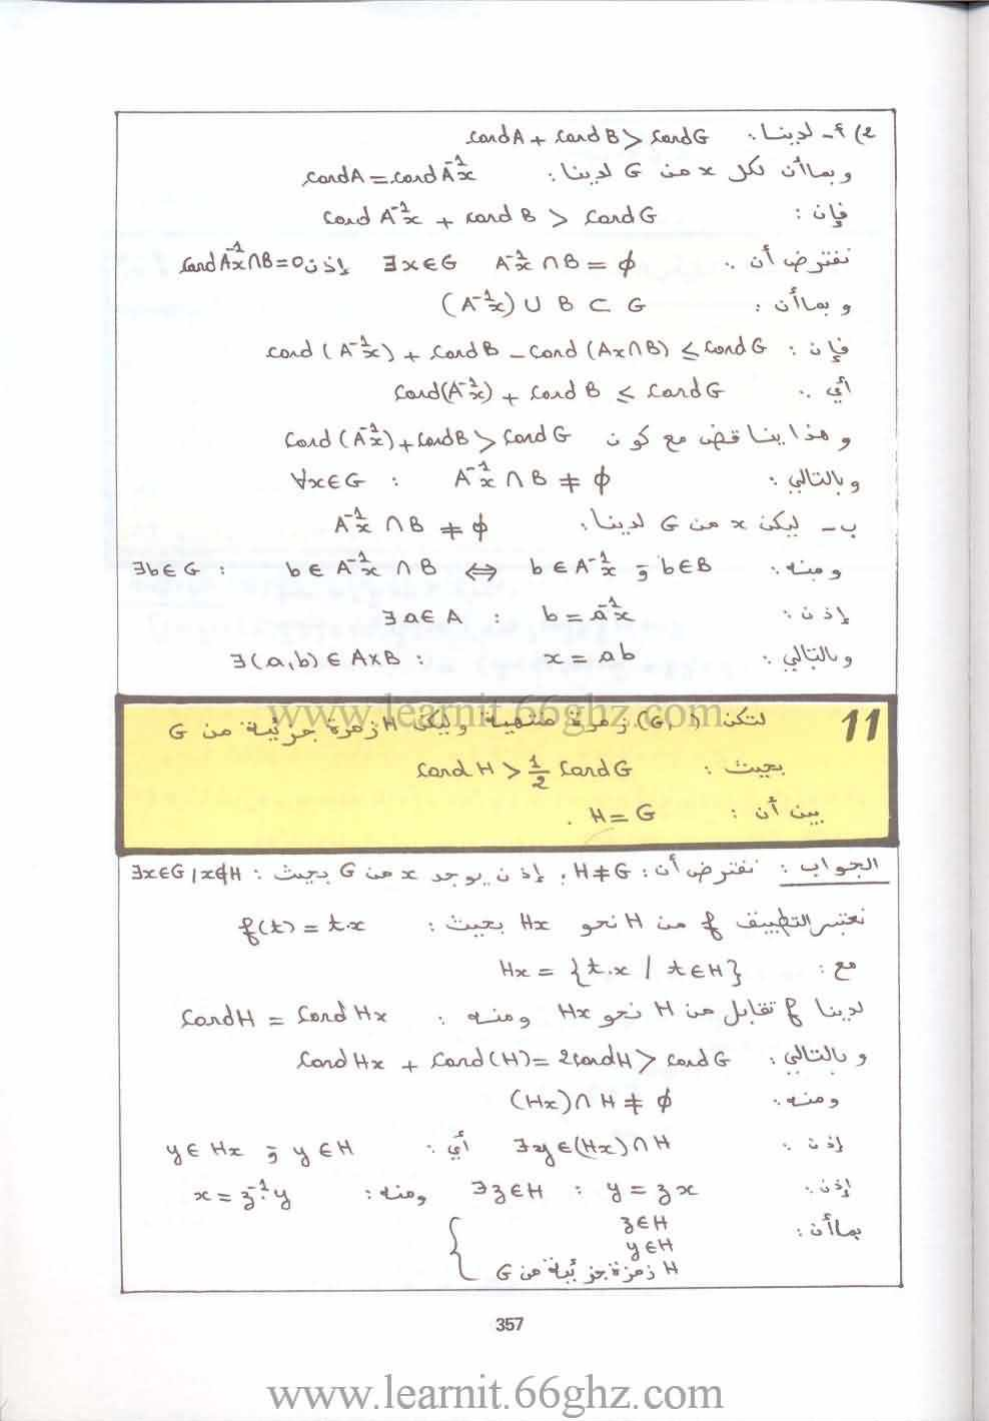 2) أ - لدينا: CardA + CardB > CardG
وبما أن لكل x من G لدينا: CardA = Card A⁻¹x
فإن: Card A⁻¹x + Card B > Card G
نفترض أن: ∃x∈G A⁻¹x ∩ B = ϕ إذن Card A⁻¹x∩B=0
وبما أن: (A⁻¹x) ∪ B ⊂ G
فإن: Card (A⁻¹x) + Card B - Card (Ax∩B) ≤ Card G
أي: Card(A⁻¹x) + Card B ≤ Card G
وهذا يناقض مع كون Card (A⁻¹x) + Card B > Card G
وبالتالي: ∀x∈G : A⁻¹x ∩ B ≠ ϕ
ب - ليكن x من G لدينا: A⁻¹x ∩ B ≠ ϕ
ومنه: ∃b∈G : b ∈ A⁻¹x ∩ B ⇔ b ∈ A⁻¹x و b∈B
إذن: ∃a∈A : b = a⁻¹x
وبالتالي: ∃(a,b) ∈ A×B : x = ab
11 لتكن (G,.) زمرة منتهية وليكن H زمرة جزئية من G
بحيث: Card H > 1/2 Card G
بين أن: H = G .
الجواب: نفترض أن: H≠G، إذن يوجد x من G بحيث: ∃x∈G / x∉H
نعتبر التطبيق f من H نحو Hx بحيث: f(t) = t.x
مع: Hx = {t.x / t∈H}
لدينا f تقابل من H نحو Hx ومنه: CardH = Card Hx
وبالتالي: Card Hx + Card(H) = 2CardH > Card G
ومنه: (Hx) ∩ H ≠ ϕ
إذن: ∃y∈(Hx)∩H أي: y∈Hx و y∈H
إذن: ∃z∈H : y = zx ومنه: x = z⁻¹.y
بما أن: { z∈H
y∈H
H زمرة جزئية من G
357
www.learnit.66ghz.com
www.learnit.66ghz.com